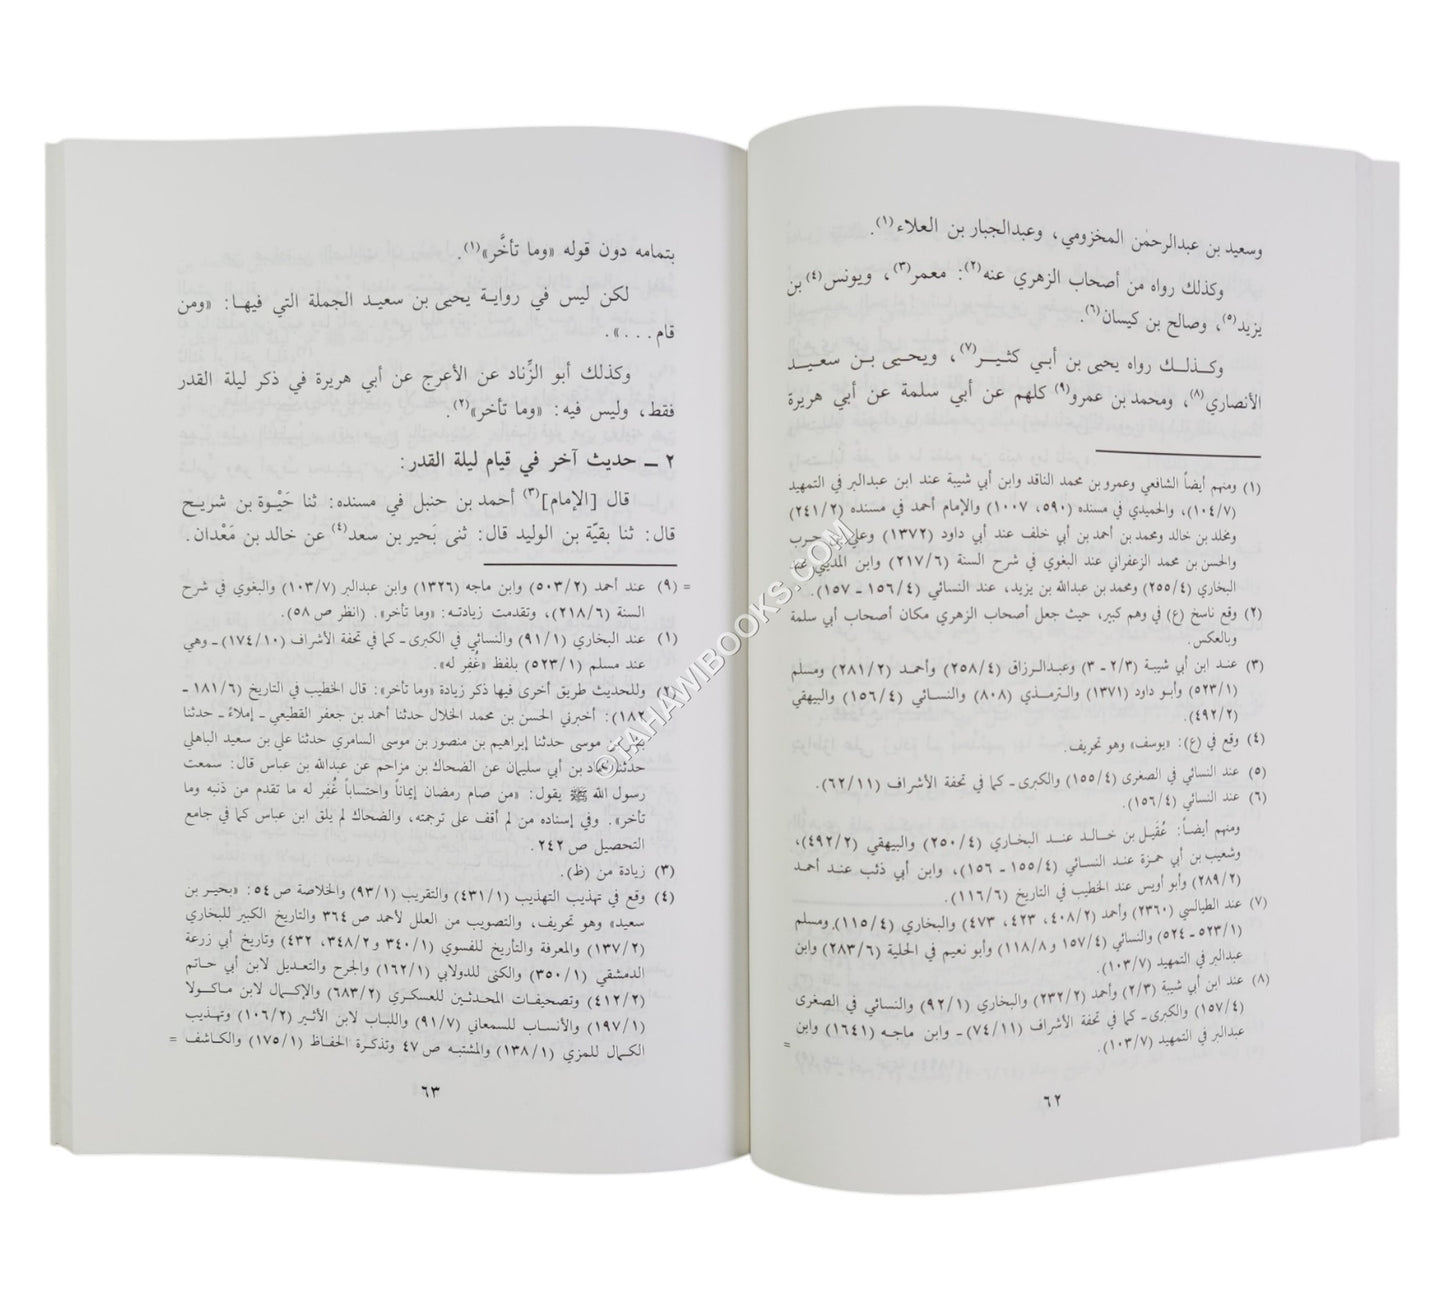 وسعيد بن عبدالرحمٰن المخزومي، وعبدالجبار بن العلاء(١).
وكذلك رواه من أصحاب الزهري عنه(٢): معمر(٣)، ويونس(٤) بن
يزيد(٥)، وصالح بن كيسان(٦).
وكذلك رواه يحيى بن أبي كثير(٧)، ويحيى بن سعيد
الأنصاري(٨)، ومحمد بن عمرو(٩) كلهم عن أبي سلمة عن أبي هريرة
(١) ومنهم أيضاً الشافعي وعمرو بن محمد الناقد وابن أبي شيبة عند ابن عبدالبر في التمهيد
(١٠٤/٧)، والحميدي في مسنده (٥٩٠، ١٠٠٧) والإمام أحمد في مسنده (٢٤١/٢)
ومخلد بن خالد ومحمد بن أحمد بن أبي خلف عند أبي داود (١٣٧٢) وعلي بن حرب
والحسن بن محمد الزعفراني عند البغوي في شرح السنة (٢١٧/٦) وابن المديني عند
البخاري (٢٥٥/٤) ومحمد بن عبدالله بن يزيد، عند النسائي (١٥٦/٤ ـ ١٥٧).
(٢) وقع ناسخ (ع) في وهم كبير، حيث جعل أصحاب الزهري مكان أصحاب أبي سلمة
وبالعكس.
(٣) عند ابن أبي شيبة (٢/٣ ـ ٣) وعبدالرزاق (٢٥٨/٤) وأحمد (٢٨١/٢) ومسلم
(٥٢٣/١) وأبو داود (١٣٧١) والترمذي (٨٠٨) والنسائي (١٥٦/٤) والبيهقي
(٤٩٢/٢).
(٤) وقع في (ع): «يوسف» وهو تحريف.
(٥) عند النسائي في الصغرى (١٥٥/٤) والكبرى ـ كما في تحفة الأشراف (٦٢/١١).
(٦) عند النسائي (١٥٦/٤).
ومنهم أيضاً: عُقَيل بن خالد عند البخاري (٢٥٠/٤) والبيهقي (٤٩٢/٢)،
وشعيب بن أبي حمزة عند النسائي (١٥٥/٤ ـ ١٥٦)، وابن أبي ذئب عند أحمد
(٢٨٩/٢) وأبو أويس عند الخطيب في التاريخ (١١٦/٦).
(٧) عند الطيالسي (٢٣٦٠) وأحمد (٤٠٨/٢، ٤٢٣، ٤٧٣) والبخاري (١١٥/٤)، ومسلم
(٥٢٣/١ ـ ٥٢٤) والنسائي (١٥٧/٤ و١١٨/٨) وأبو نعيم في الحلية (٢٨٣/٦) وابن
عبدالبر في التمهيد (١٠٣/٧).
(٨) عند ابن أبي شيبة (٢/٣) وأحمد (٢٣٢/٢) والبخاري (٩٢/١) والنسائي في الصغرى
(١٥٧/٤) والكبرى ـ كما في تحفة الأشراف (٧٤/١١) ـ وابن ماجه (١٦٤١) وابن
عبدالبر في التمهيد (١٠٣/٧). =
٦٢
بتمامه دون قوله «وما تأخَّر»(١).
لكن ليس في رواية يحيى بن سعيد الجملة التي فيها: «ومن
قام...».
وكذلك أبو الزِّناد عن الأعرج عن أبي هريرة في ذكر ليلة القدر
فقط، وليس فيه: «وما تأخر»(٢).
٢ ـ حديث آخر في قيام ليلة القدر:
قال [الإمام](٣) أحمد بن حنبل في مسنده: ثنا حَيْوة بن شريح
قال: ثنا بقيّة بن الوليد قال: ثنى بَحير بن سعد(٤) عن خالد بن مَعْدان.
= (٩) عند أحمد (٥٠٣/٢) وابن ماجه (١٣٢٦) وابن عبدالبر (١٠٣/٧) والبغوي في شرح
السنة (٢١٨/٦)، وتقدمت زيادته: «وما تأخر». (انظر ص ٥٨).
(١) عند البخاري (٩١/١) والنسائي في الكبرى ـ كما في تحفة الأشراف (١٧٤/١٠) ـ وهي
عند مسلم (٥٢٣/١) بلفظ «غُفر له».
(٢) وللحديث طريق أخرى فيها ذكر زيادة «وما تأخر»: قال الخطيب في التاريخ (١٨١/٦ ـ
١٨٢): أخبرني الحسن بن محمد الخلال حدثنا أحمد بن جعفر القطيعي ـ إملاءً ـ حدثنا
موسى حدثنا إبراهيم بن منصور بن موسى السامري حدثنا علي بن سعيد الباهلي
حدثنا بن أبي سليمان عن الضحاك بن مزاحم عن عبدالله بن عباس قال: سمعت
رسول الله ﷺ يقول: «من صام رمضان إيماناً واحتساباً غُفر له ما تقدم من ذنبه وما
تأخر». وفي إسناده من لم أقف على ترجمته، والضحاك لم يلق ابن عباس كما في جامع
التحصيل ص ٢٤٢.
(٣) زيادة من (ظ).
(٤) وقع في تهذيب التهذيب (٤٣١/١) والتقريب (٩٣/١) والخلاصة ص ٥٤: «بحير بن
سعيد» وهو تحريف، والتصويب من العلل لأحمد ص ٣٦٤ والتاريخ الكبير للبخاري
(١٣٧/٢) والمعرفة والتأريخ للفسوي (٣٤٠/١ و٣٤٨/٢، ٤٣٢) وتاريخ أبي زرعة
الدمشقي (٣٥٠/١) والكنى للدولابي (١٦٢/١) والجرح والتعديل لابن أبي حاتم
(٤١٢/٢) وتصحيفات المحدثين للعسكري (٦٨٣/٢) والإكمال لابن ماكولا
(١٩٧/١) والأنساب للسمعاني (٩١/٧) واللباب لابن الأثير (١٠٦/٢) وتهذيب
الكمال للمزي (١٣٨/١) والمشتبه ص ٤٧ وتذكرة الحفاظ (١٧٥/١) والكاشف =
٦٣
©TAHAWIBOOKS.COM